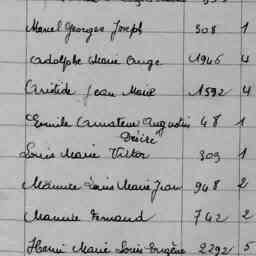 Marcel Georges Joseph 308 1
Adolphe Marie Ange 1946 4
Aristide Jean Marie 1592 4
Emile Amateur Augustin 48 1
Désiré
Louis Marie Victor 309 1
Maurice Louis Marie Jean 948 2
Maurice Fernand 742 2
Henri Marie Louis Eugène 2292 5